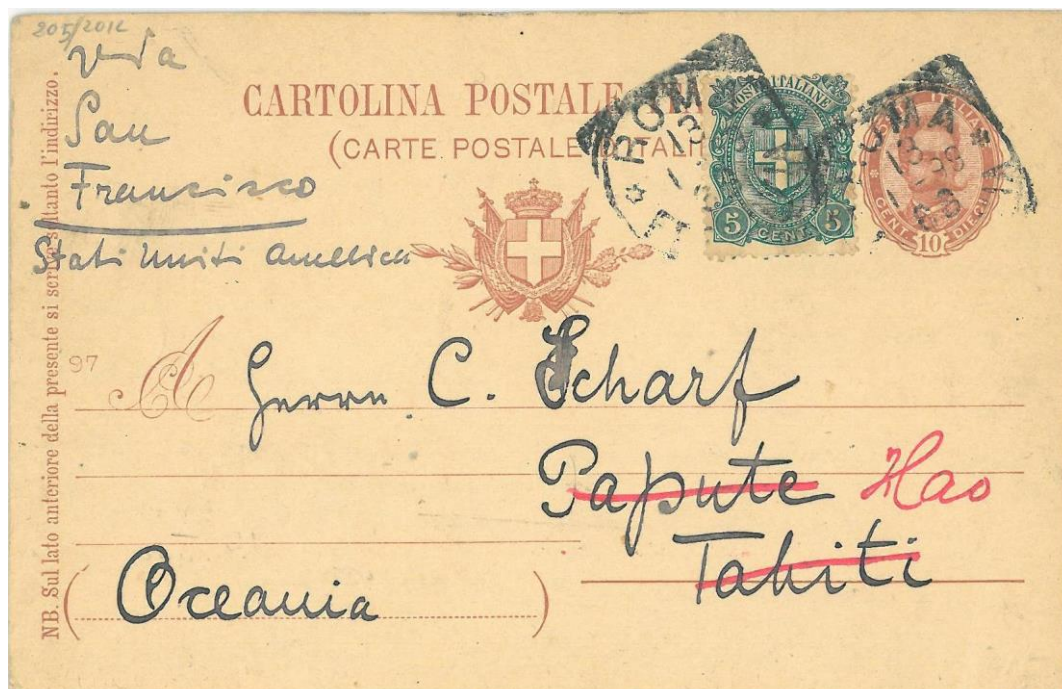 205/2012
via
San
Francisco
Stati Uniti America
CARTOLINA POSTALE
(CARTE POSTALE
POSTE ITALIANE
5 CENT 5
ROMA
ROMA
13
98
CENT. 10 DIECI
97
A Herrn C. Scharf
Papute Hao
Tahiti
(Oceania)
NB. Sul lato anteriore della presente si scrive soltanto l'indirizzo.